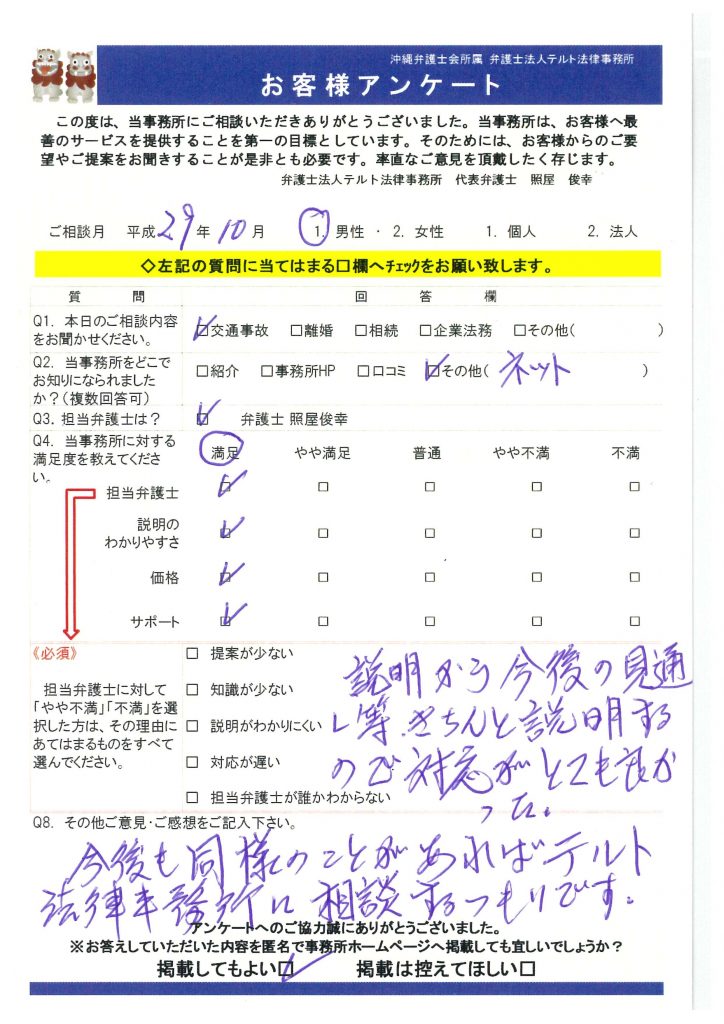 沖縄弁護士会所属 弁護士法人テルト法律事務所
お客様アンケート
この度は、当事務所にご相談いただきありがとうございました。当事務所は、お客様へ最
善のサービスを提供することを第一の目標としています。そのためには、お客様からのご要
望やご提案をお聞きすることが是非とも必要です。率直なご意見を頂戴したく存じます。
弁護士法人テルト法律事務所 代表弁護士 照屋 俊幸
ご相談月 平成 29 年 10 月 1. 男性 ・ 2. 女性 1. 個人 2. 法人
◇左記の質問に当てはまる□欄へチェックをお願い致します。
質 問 回 答 欄
Q1. 本日のご相談内容
をお聞かせください。
□交通事故 □離婚 □相続 □企業法務 □その他( )
Q2. 当事務所をどこで
お知りになられました
か?(複数回答可)
□紹介 □事務所HP □口コミ □その他( ネット )
Q3. 担当弁護士は? □ 弁護士 照屋俊幸
Q4. 当事務所に対する
満足度を教えてくださ
い。
満足 やや満足 普通 やや不満 不満
担当弁護士 □ □ □ □ □
説明の
わかりやすさ □ □ □ □ □
価格 □ □ □ □ □
サポート □ □ □ □ □
《必須》
担当弁護士に対して
「やや不満」「不満」を選
択した方は、その理由に
あてはまるものをすべて
選んでください。
□ 提案が少ない
□ 知識が少ない
□ 説明がわかりにくい
□ 対応が遅い
□ 担当弁護士が誰かわからない
説明から今後の見通
し等、きちんと説明する
ので対応がとても良か
った。
Q8. その他ご意見・ご感想をご記入下さい。
今後も同様のことがあればテルト
法律事務所に相談するつもりです。
アンケートへのご協力誠にありがとうございました。
※お答えしていただいた内容を匿名で事務所ホームページへ掲載しても宜しいでしょうか?
掲載してもよい□ 掲載は控えてほしい□